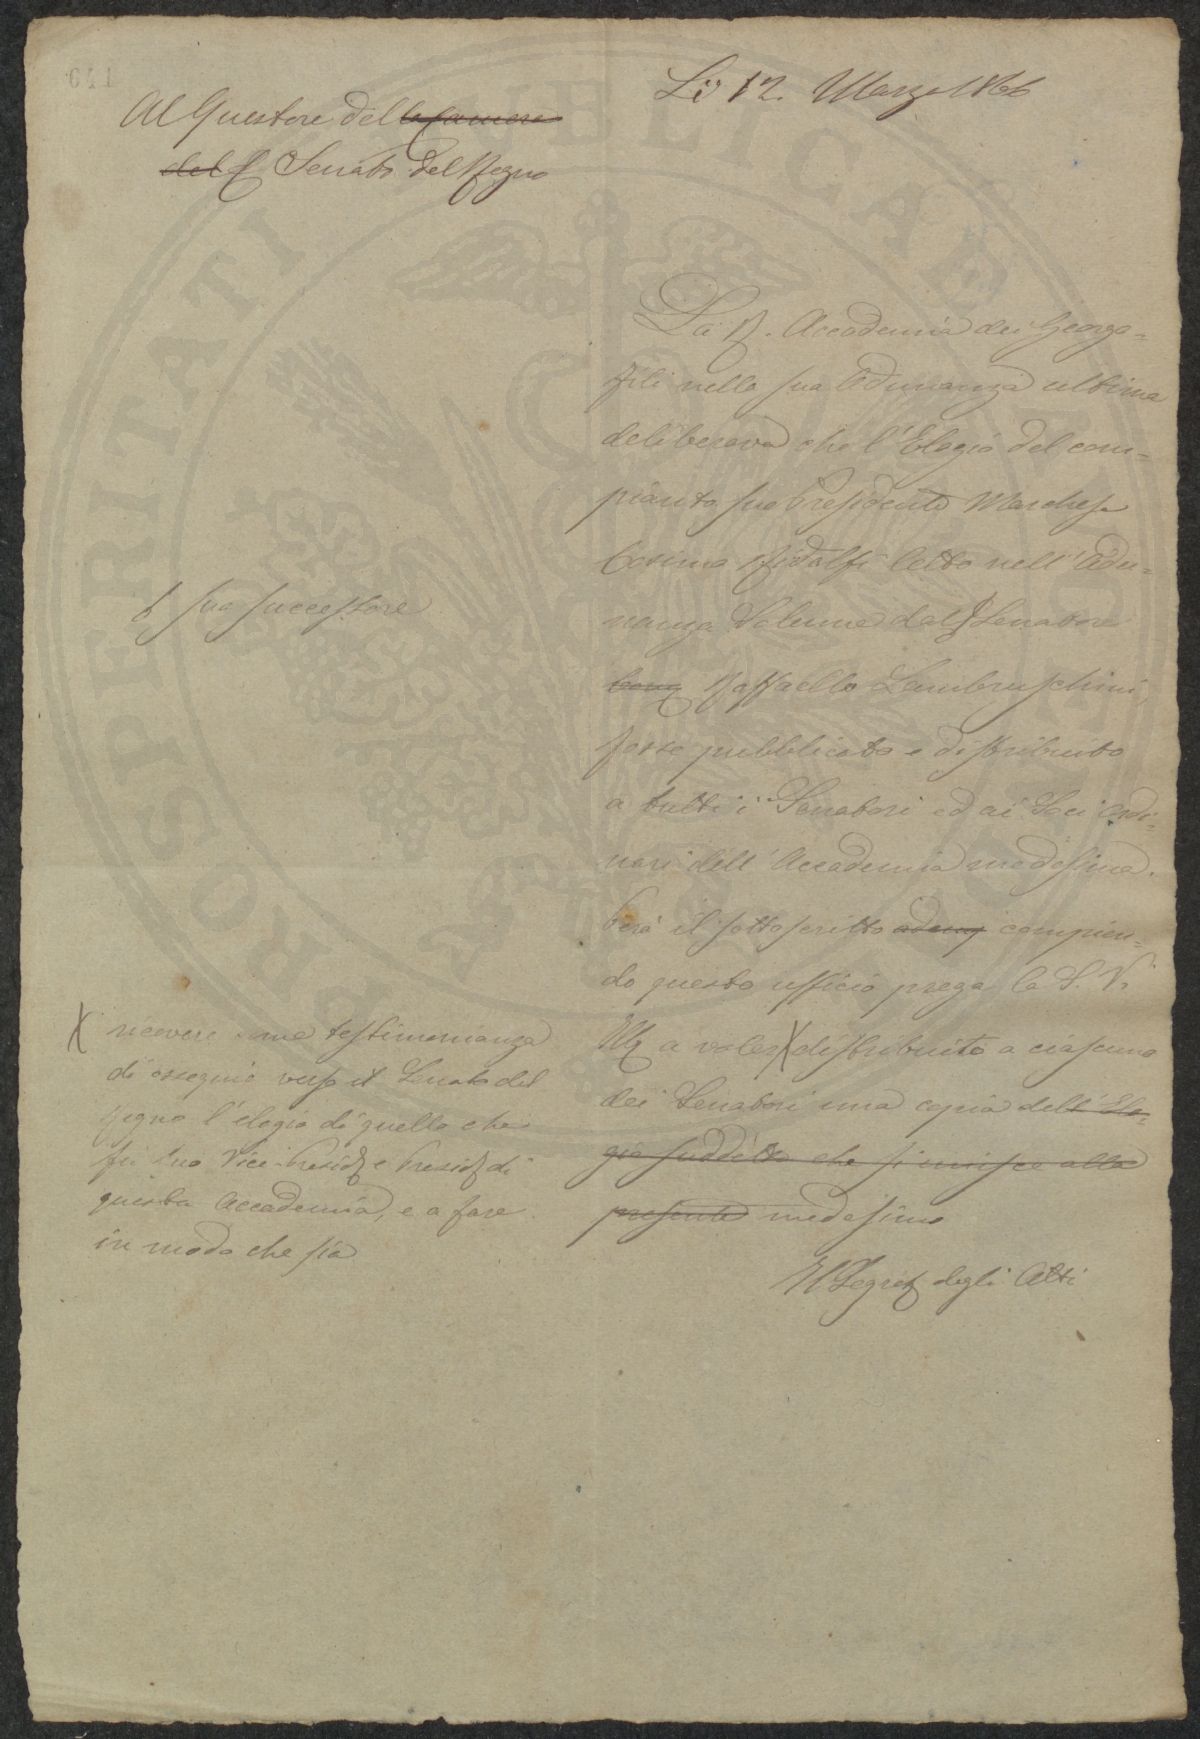 Li 12. Marzo 1866
Al Questore della Camera
del Senato del Regno
La R. Accademia dei Georgo-
fili nella sua Adunanza ultima
deliberava che l'Elogio del com-
pianto suo Presidente Marchese
Cosimo Ridolfi letto nell'Adu-
nanza Solenne dal Senatore
Raffaello Lambruschini,
fosse pubblicato e distribuito
a tutti i Senatori ed ai Soci Ordi-
nari dell'Accademia medesima.
Però il sottoscritto compien-
do questo ufficio prega la S. V.
Ill a voler X distribuito a ciascuno
dei Senatori una copia dell'Elo-
gio suddetto che si unisce alla
presente medesimo
Il Segret degli Atti
suo successore
X ricevere come testimonianza
di ossequio verso il Senato del
Regno l'elogio di quello che
fu suo Vice-Presid e Presid di
questa Accademia, e a fare
in modo che sia
PROSPERITATI PUBLICAE AUGENDAE